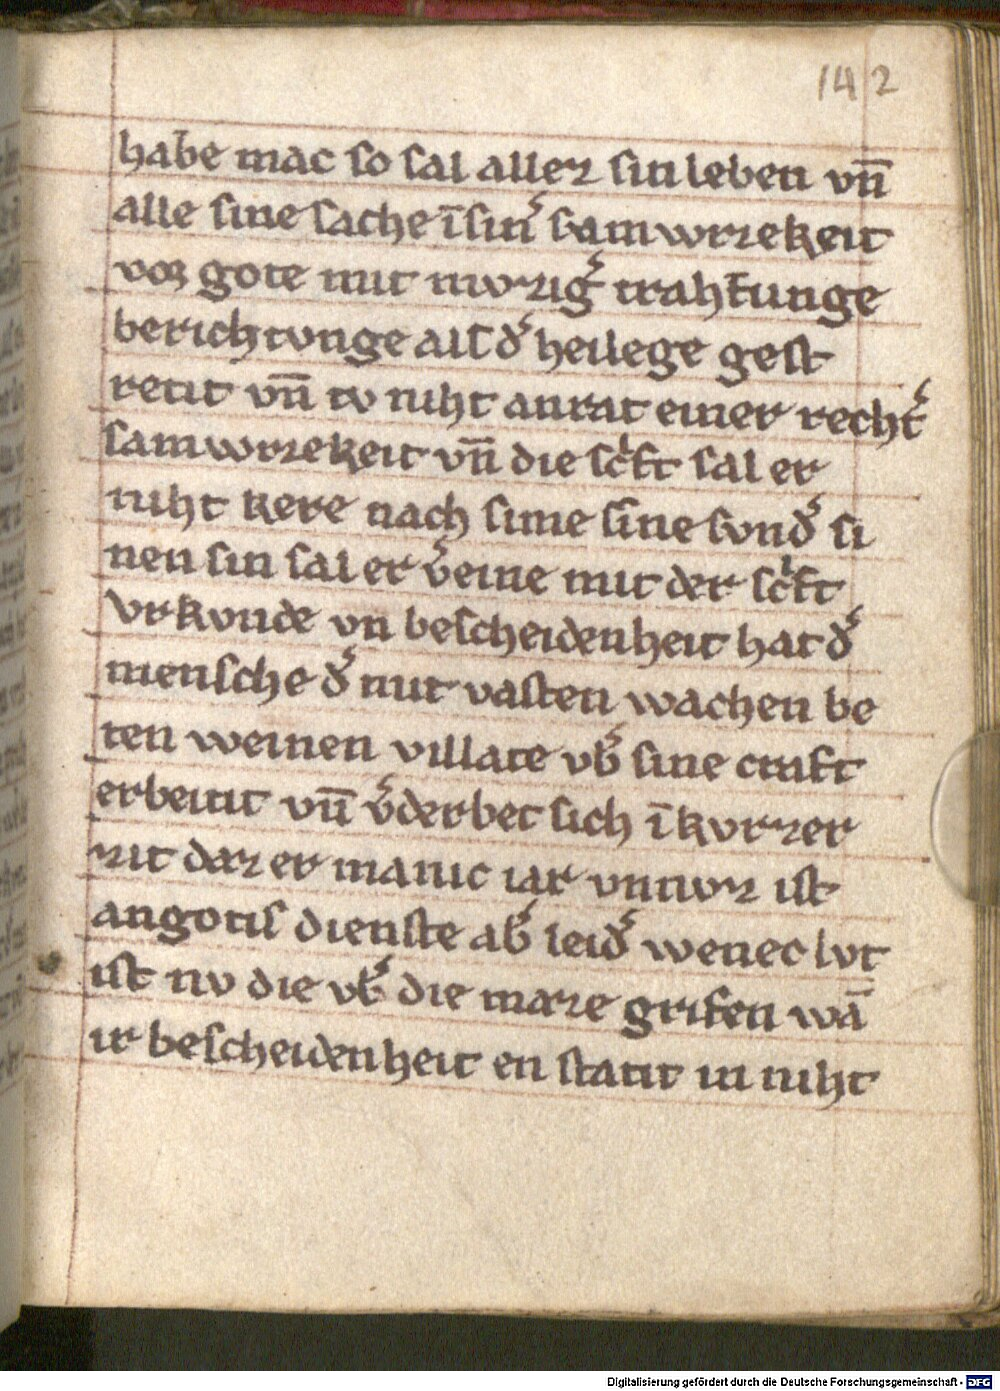 142
habe mac so sal allez sin leben vn̄
alle sine sache ī sin͛ samwizzekeit
vor gote mit nivzig͛ trahtunge
berichtvnge als d͛ heilege gest
retit vn̄ tv niht an rat einer recht͛
samwizzekeit vn̄ die scͥft sal er
niht kere nach sime sine svnd͛ si
nen sin sal er v͛eine mit der scͥft
vrkvnde vn bescheidenheit hat d͛
mensche d͛ mit vasten wachen be
ten weinen villate vb͛ sine craft
erbeitit vn̄ v͛derbet sich ī kvrzer
zit daz er manic iar vnnvz ist
an gotis dienste ab͛ leid͛ wenec lvt
ist nv die vb͛ die maze grifen wā
ir bescheidenheit en statit in niht
Digitalisierung gefördert durch die Deutsche Forschungsgemeinschaft - DFG